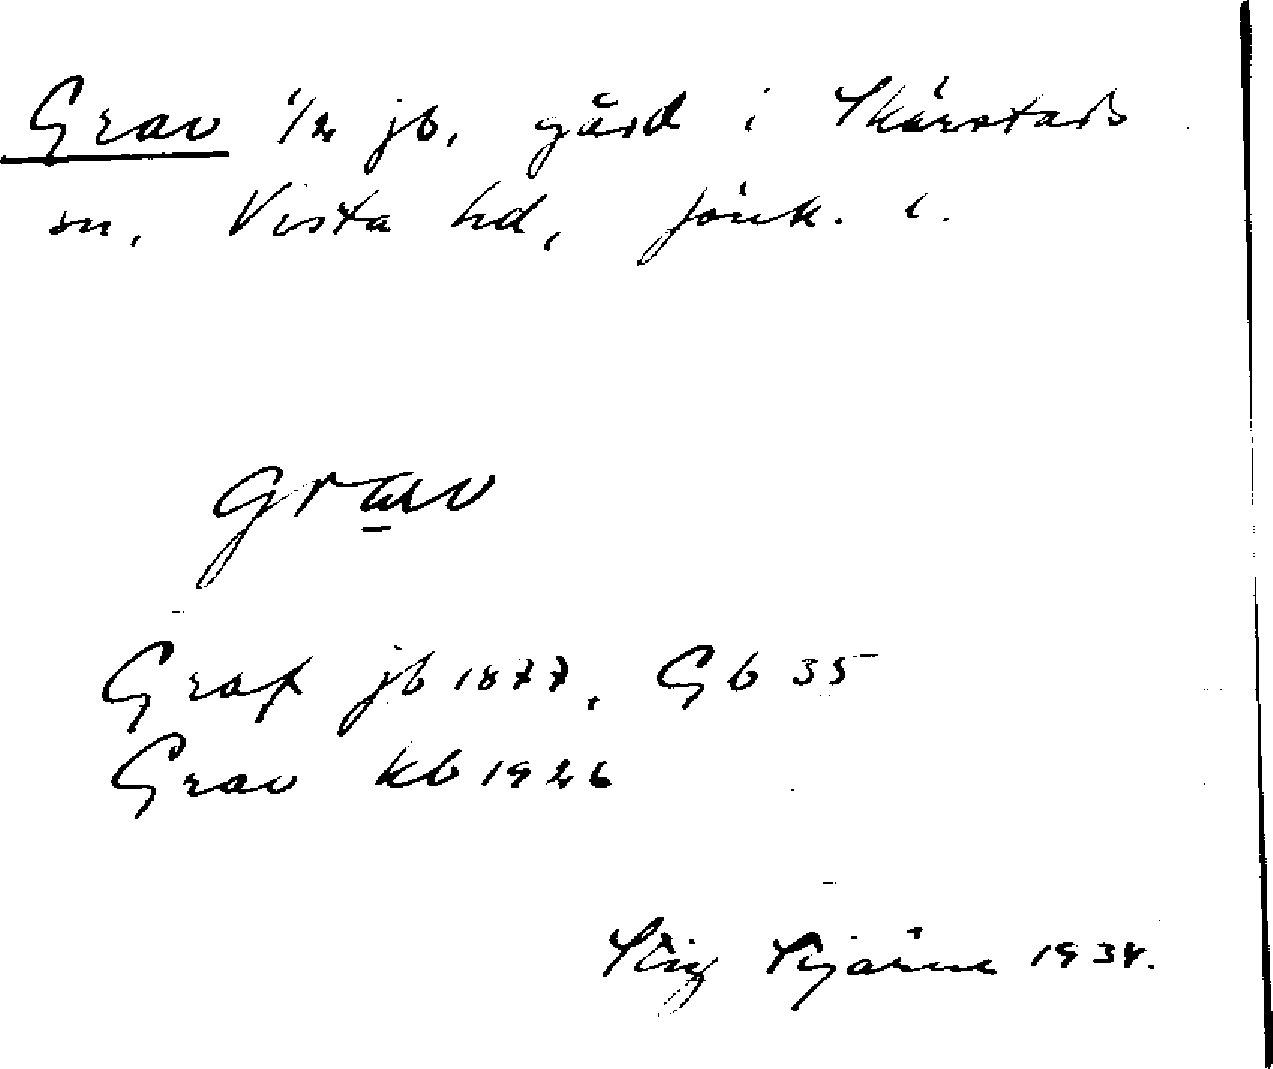 Grav 1/2 jb, gård i Skärstads
sn, Vista hd, Jönk. l.
grav
Graf jb 1877, Gb 35
Grav kb 1926
Stig 1934.